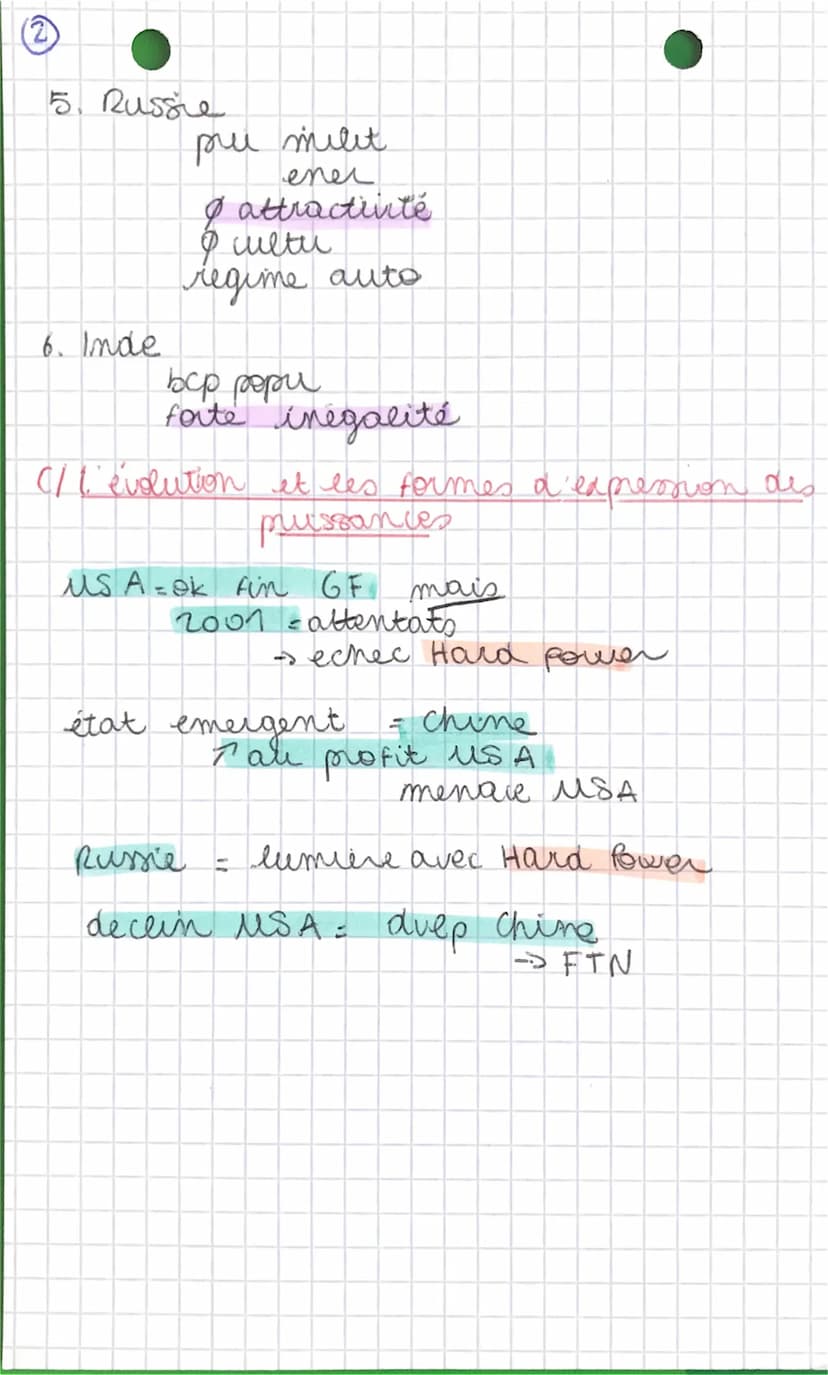 2
5. Russie
pui milit
ener
∅ attractivité
∅ cultu
régime auto
6. Inde
bcp popu
forte inégalité
C/ L'évolution et les formes d'expression des
puissances
USA = ok fin GF mais
2001 = attentats
→ echec Hard power
état emergent = Chine
↗ au profit USA
menace USA
Russie = lumière avec Hard Power
declin USA = dvlp Chine
→ FTN